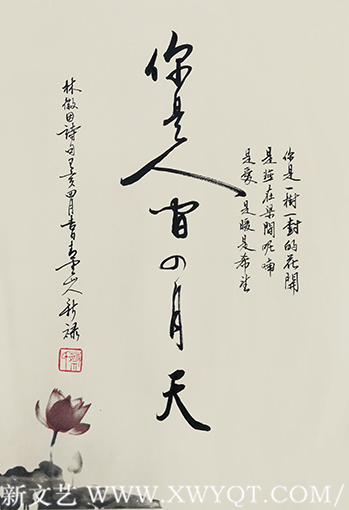 你是一樹一樹的花開
是燕在梁間呢喃
是愛 是暖是希望
你是人间四月天
林徽因詩句己亥四月書山人新禄
新文艺 www.XWYQT.COM